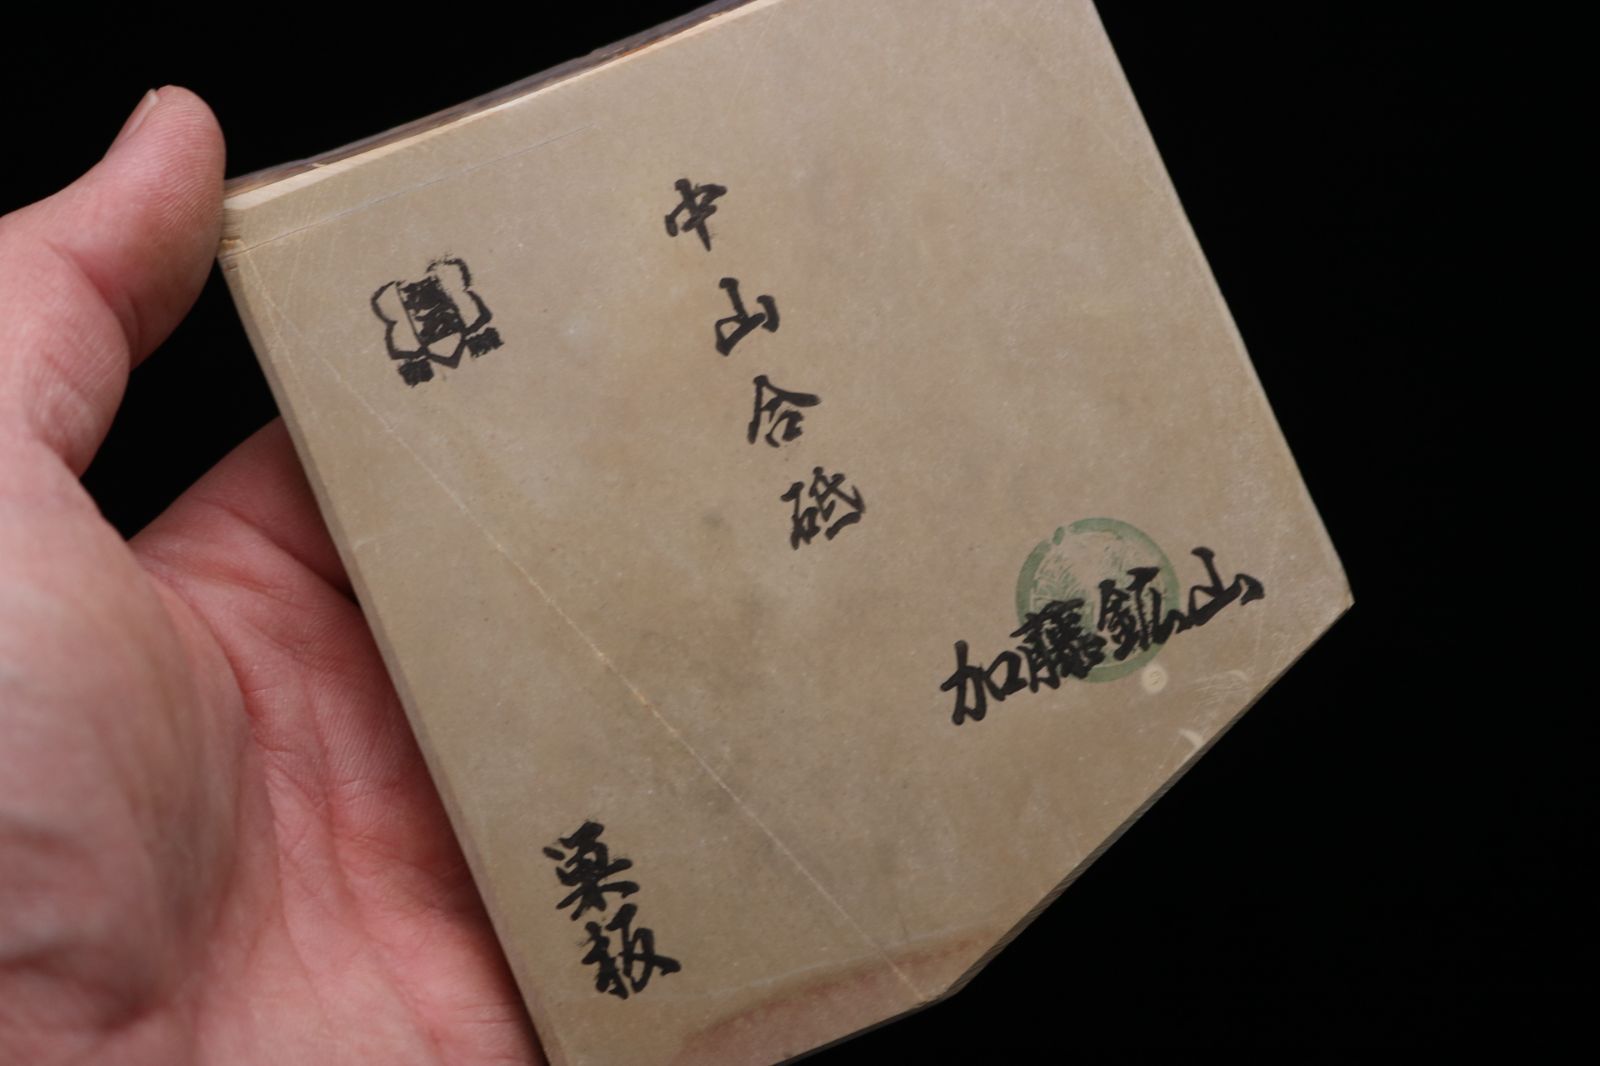 中山合砥
加藤鉱山
巣板